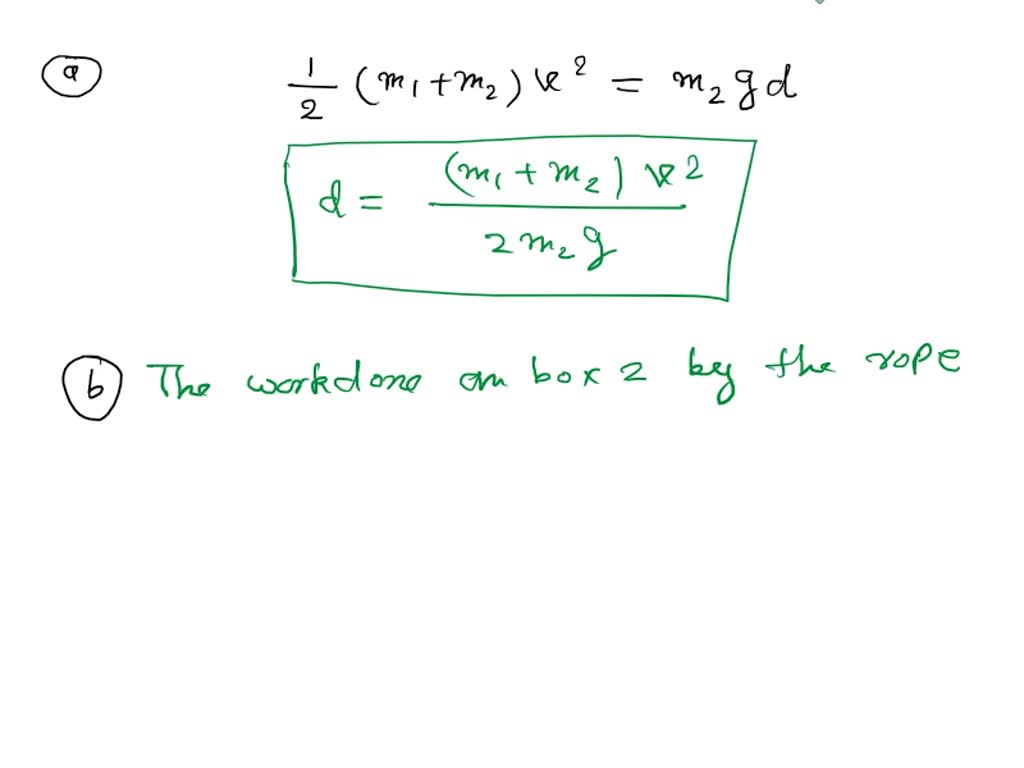 a
1/2 (m₁+m₂) v² = m₂gd
d = (m₁+m₂) v² / 2m₂g
b The workdone on box 2 by the rope